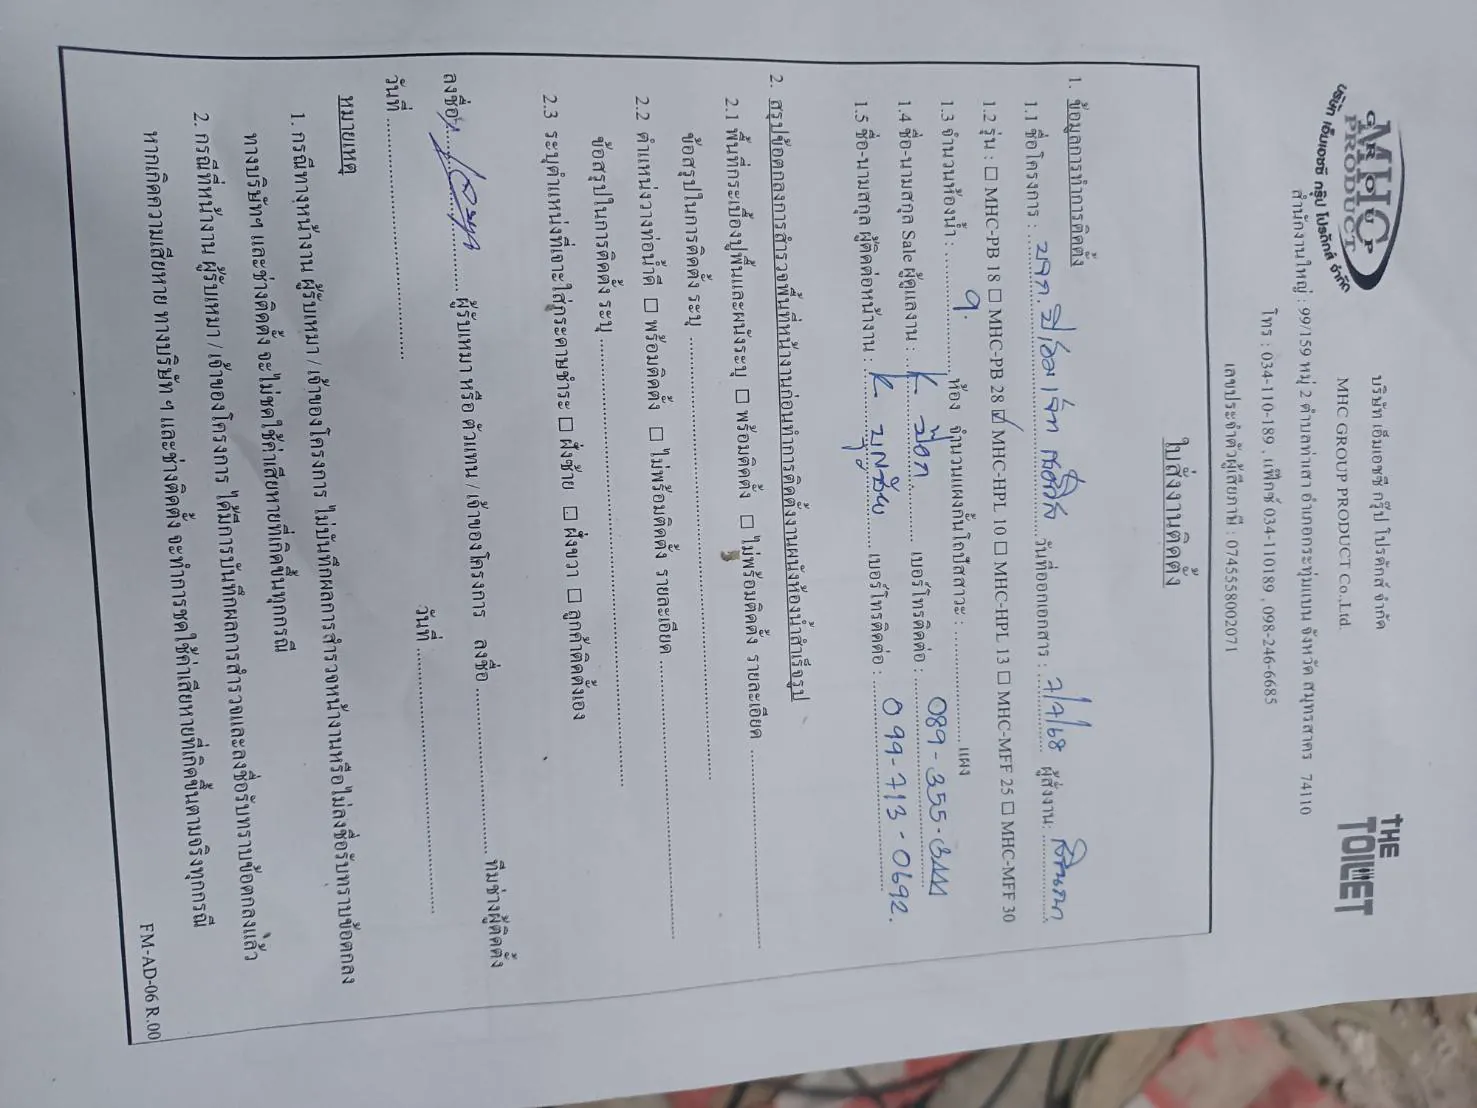 MHC
GROUP
PRODUCT
บริษัท เอ็มเอชซี กรุ๊ป โปรดักส์ จำกัด
บริษัท เอ็มเอชซี กรุ๊ป โปรดักส์ จำกัด
MHC GROUP PRODUCT Co.,Ltd.
THE TOILET
สำนักงานใหญ่ : 99/159 หมู่ 2 ตำบลท่าเสา อำเภอกระทุ่มแบน จังหวัด สมุทรสาคร 74110
โทร : 034-110-189 , แฟ็กซ์ 034-110189 , 098-246-6685
เลขประจำตัวผู้เสียภาษี : 0745558002071
ใบสั่งงานติดตั้ง
1. ข้อมูลการทำการติดตั้ง
1.1 ชื่อโครงการ : บจก. วันที่ออกเอกสาร : 7/7/68 ผู้สั่งงาน:
1.2 รุ่น : ☐ MHC-PB 18 ☐ MHC-PB 28 ☑ MHC-HPL 10 ☐ MHC-HPL 13 ☐ MHC-MFF 25 ☐ MHC-MFF 30
1.3 จำนวนห้องน้ำ : 9 ห้อง จำนวนแผงกั้นโถปัสสาวะ : แผง
1.4 ชื่อ-นามสกุล Sale ผู้ดูแลงาน : K เบอร์โทรติดต่อ : 089-355-
1.5 ชื่อ-นามสกุล ผู้ติดต่อหน้างาน : K บุญชัย เบอร์โทรติดต่อ : 099-713-0692.
2. สรุปข้อตกลงการสำรวจพื้นที่หน้างานก่อนทำการติดตั้งงานผนังห้องน้ำสำเร็จรูป
2.1 พื้นที่กระเบื้องปูพื้นและผนังระบุ ☐ พร้อมติดตั้ง ☐ ไม่พร้อมติดตั้ง รายละเอียด
ข้อสรุปในการติดตั้ง ระบุ
2.2 ตำแหน่งวางท่อน้ำดี ☐ พร้อมติดตั้ง ☐ ไม่พร้อมติดตั้ง รายละเอียด
ข้อสรุปในการติดตั้ง ระบุ
2.3 ระบุตำแหน่งที่เจาะใส่กระดาษชำระ ☐ ฝั่งซ้าย ☐ ฝั่งขวา ☐ ลูกค้าติดตั้งเอง
ลงชื่อ ผู้รับเหมา หรือ ตัวแทน / เจ้าของโครงการ ลงชื่อ ทีมช่างผู้ติดตั้ง
วันที่ วันที่
หมายเหตุ
1. กรณีทางหน้างาน ผู้รับเหมา / เจ้าของโครงการ ไม่บันทึกผลการสำรวจหน้างานหรือไม่ลงชื่อรับทราบข้อตกลง
ทางบริษัทฯ และช่างติดตั้ง จะไม่ชดใช้ค่าเสียหายที่เกิดขึ้นทุกกรณี
2. กรณีที่หน้างาน ผู้รับเหมา / เจ้าของโครงการ ได้มีการบันทึกผลการสำรวจและลงชื่อรับทราบข้อตกลงแล้ว
หากเกิดความเสียหาย ทางบริษัท ฯ และช่างติดตั้ง จะทำการชดใช้ค่าเสียหายที่เกิดขึ้นตามจริงทุกกรณี
FM-AD-06 R.00